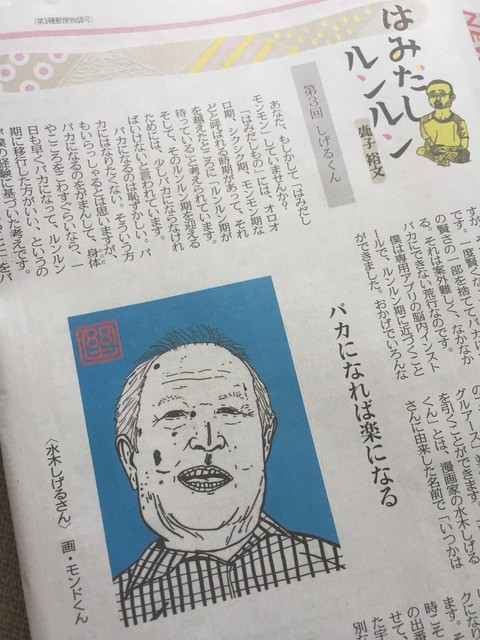 (第3種郵便物認可)
はみだし
ルンルン
鹿子 裕文
第3回 しげるくん
あなた、もしかして「はみだし
モンモン」していませんか?
「はみだしもの」には、オロオ
ロ期、シクシク期、モンモン期な
どと呼ばれる時期があって、それ
を越えたところに「ルンルン期が
待っている」と考えられています。
そして、そのルンルン期を迎える
ためには、少しバカにならなけれ
ばいけないと言われています。
バカになるのは恥ずかしい。バ
カにはなりたくない。そういう方
もいらっしゃるとは思いますが、
バカになるのをがまんして、身体
やこころをこわすぐらいなら、一
日も早くバカになって、ルンルン
期に移行した方がいい、というの
が僕の経験に基づいた考えです。
です。一度賢くな
の賢さの一部を捨ててバカに
る。それは案外難しく、なかなか
バカにできない荒行なのです。
僕は専用アプリの脳内インスト
ールで、ルンルン期に近づくこと
ができました。おかげでいろんな
バカになれば楽になる
グルアース」
を引くことができます。
くん」とは、漫画家の水木しげる
さんに由来した名前で「いつかは
〈水木しげるさん〉 画・モンドくん